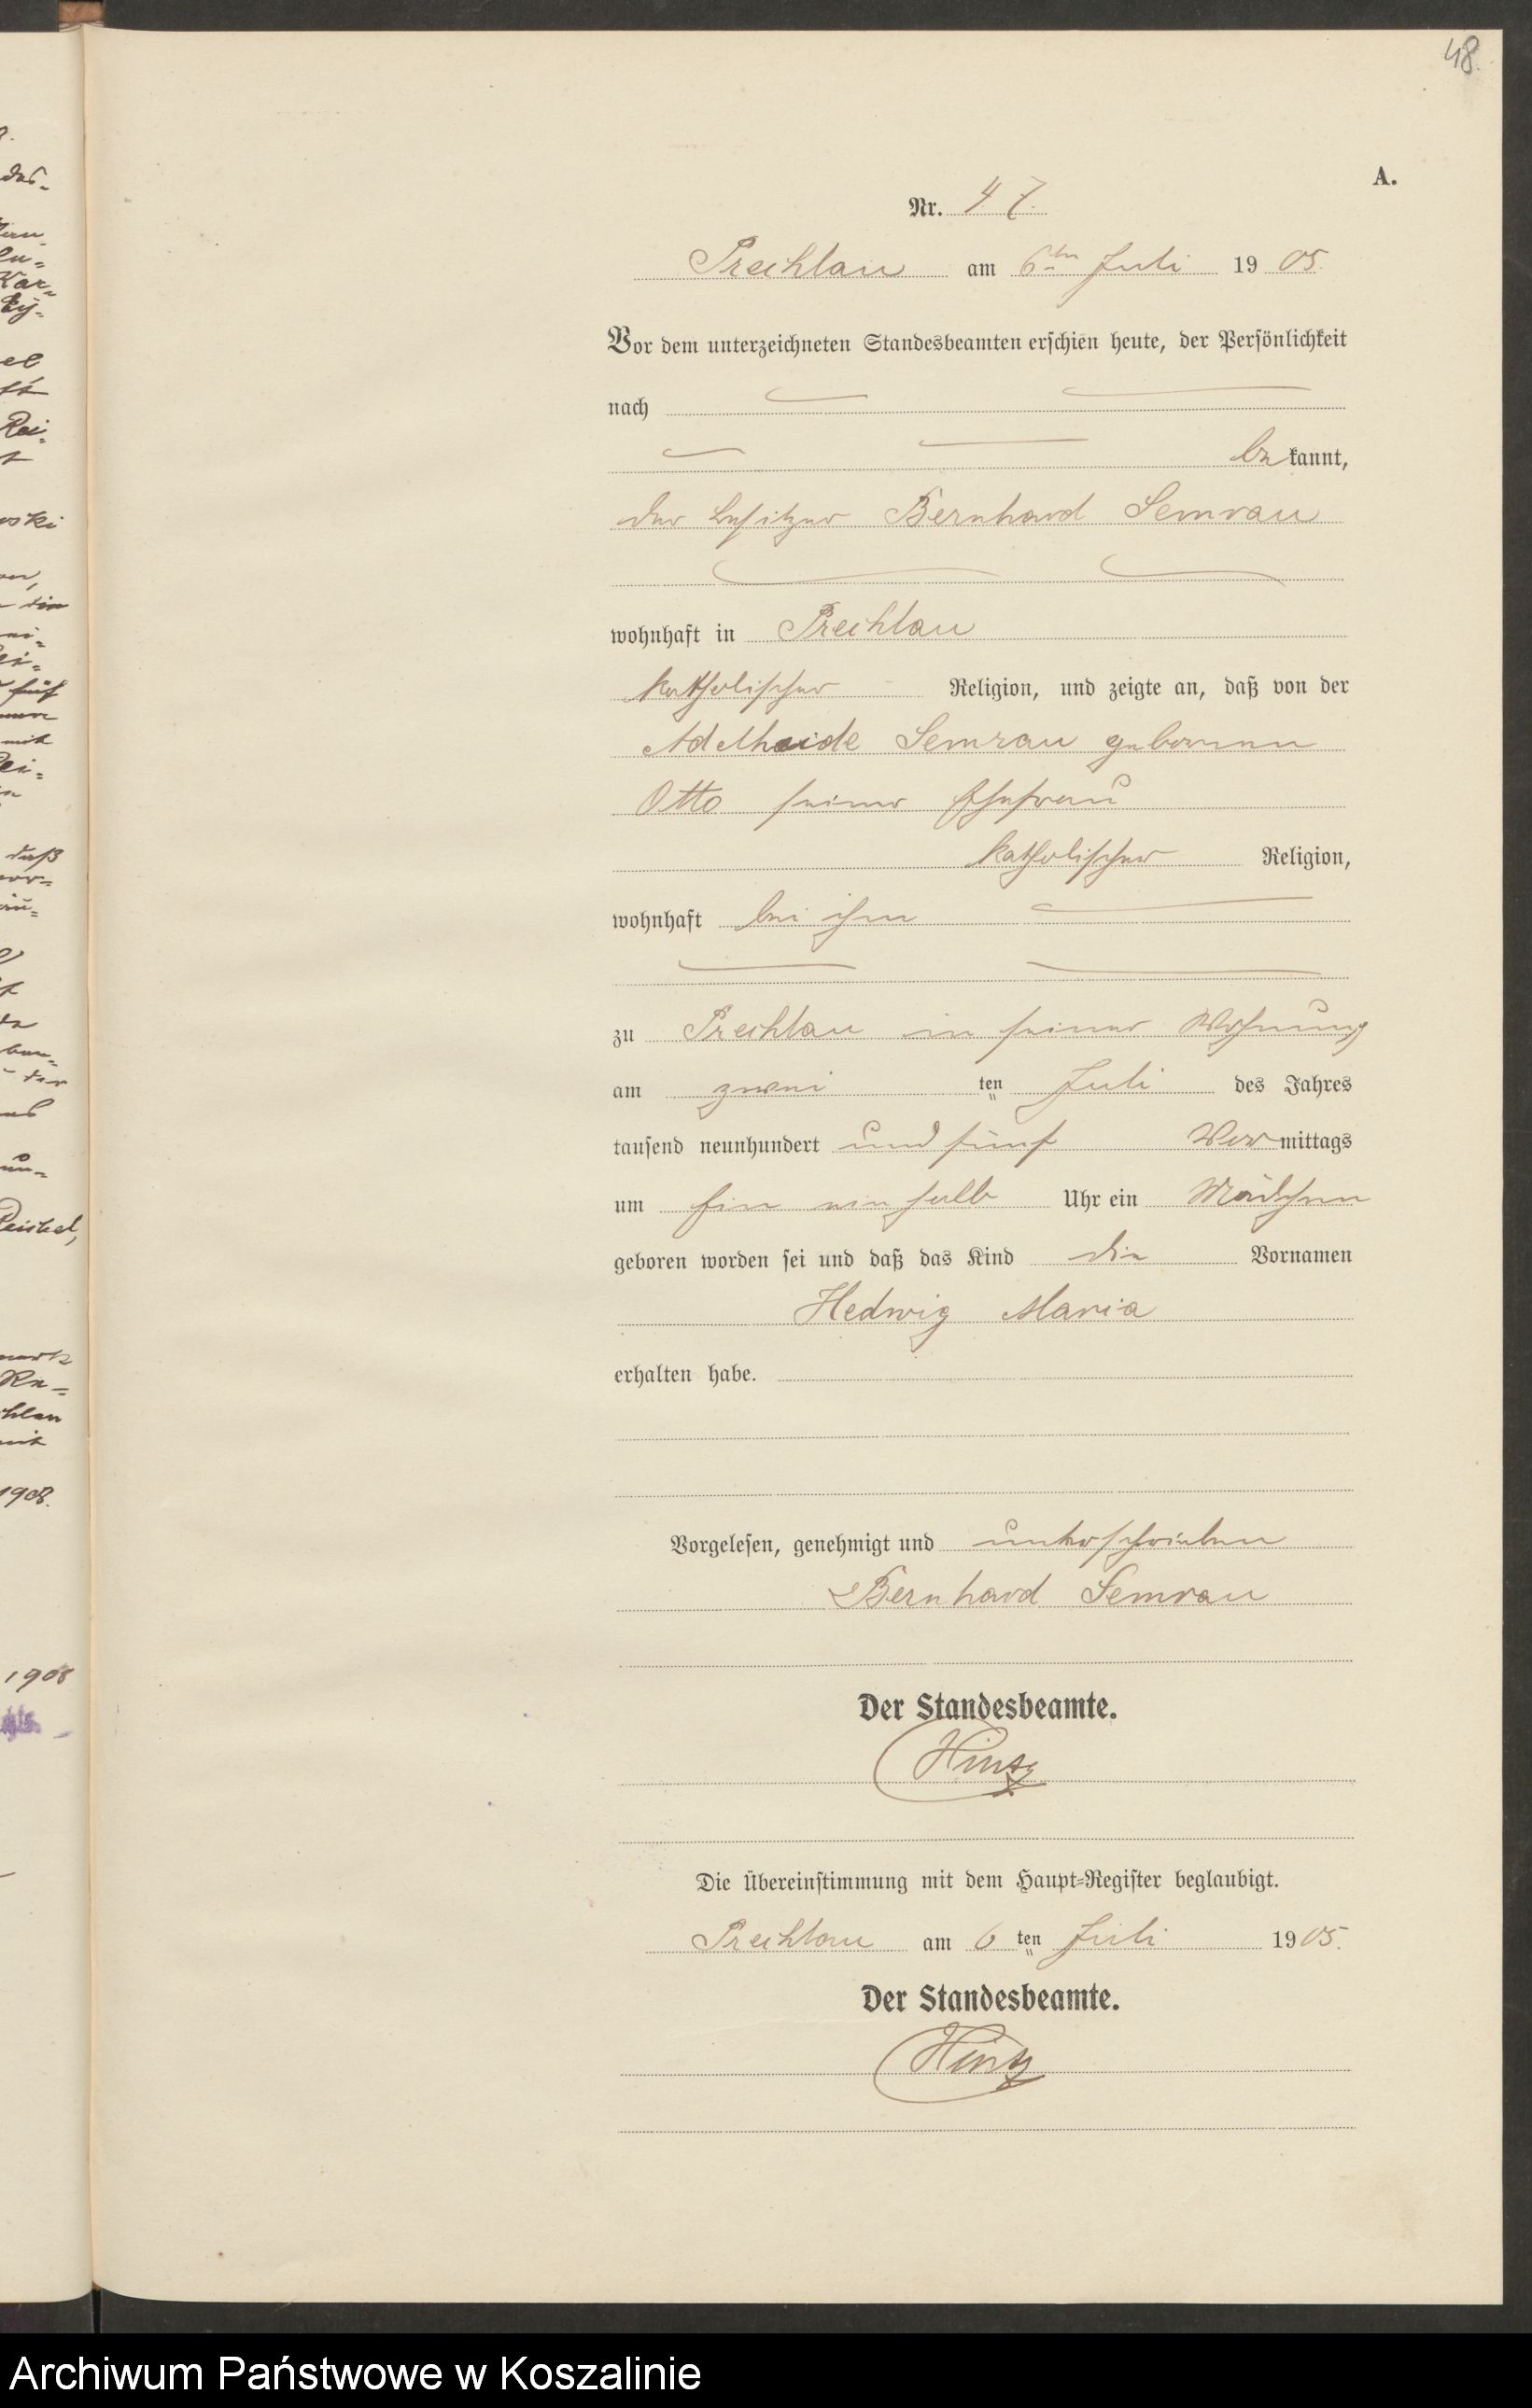 48.
A.
Nr. 47.
Prechlau am 6ten Juli 1905.
Vor dem unterzeichneten Standesbeamten erschien heute, der Persönlichkeit
nach
bekannt,
der Besitzer Bernhard Semrau
wohnhaft in Prechlau
katholischer Religion, und zeigte an, daß von der
Adelheide Semrau geborenen
Otto seiner Ehefrau
katholischer Religion,
wohnhaft bei ihm
zu Prechlau in seiner Wohnung
am zwei ten Juli des Jahres
tausend neunhundert und fünf Vormittags
um ein halb Uhr ein Mädchen
geboren worden sei und daß das Kind die Vornamen
Hedwig Maria
erhalten habe.
Vorgelesen, genehmigt und unterschrieben
Bernhard Semrau
Der Standesbeamte.
Hintz
Die Übereinstimmung mit dem Haupt-Register beglaubigt.
Prechlau am 6 ten Juli 1905.
Der Standesbeamte.
Hintz
Archiwum Państwowe w Koszalinie